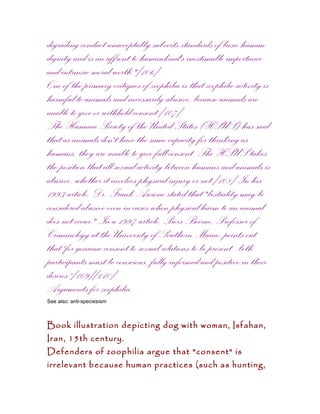 degrading conduct unacceptably subverts standards of base human
dignity and is an affront to humankind's inestimable importance
and intrinsic moral worth."[106]
One of the primary critiques of zoophilia is that zoophilic activity is
harmful to animals and necessarily abusive, because animals are
unable to give or withhold consent.[107]
The Humane Society of the United States (HSUS) has said
that as animals don't have the same capacity for thinking as
humans, they are unable to give full consent. The HSUS takes
the position that all sexual activity between humans and animals is
abusive, whether it involves physical injury or not.[108] In his
1993 article, Dr. Frank Ascione stated that "bestiality may be
considered abusive even in cases when physical harm to an animal
does not occur." In a 1997 article, Piers Beirne, Professor of
Criminology at the University of Southern Maine, points out
that 'for genuine consent to sexual relations to be present...both
participants must be conscious, fully informed and positive in their
desires.'[109][110]
Arguments for zoophilia
See also: anti-speciesism
Book illustration depicting dog with woman, Isfahan,
Iran, 15th century.
Defenders of zoophilia argue that "consent" is
irrelevant because human practices (such as hunting,